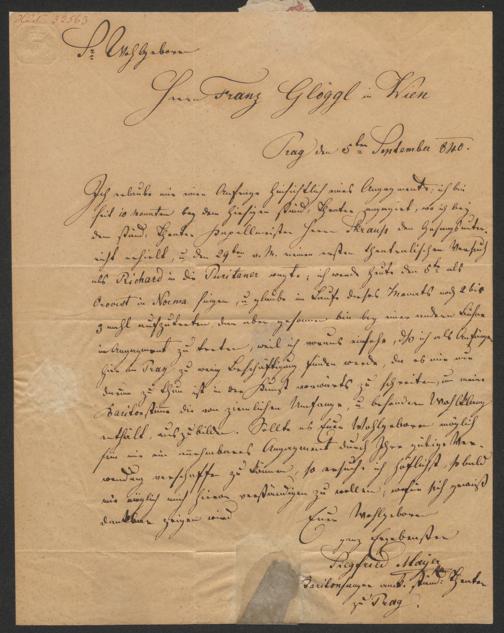 Sr Wohlgeboren
Herrn Franz Glöggl in Wien
Prag den 5ten September 840.
Ich erlaube mir eine Anfrage hinsichtlich eines Engagements, ich bin
seit 10 Monaten bey dem hiesigen ständ. Theater engagirt, wo ich bey
dem ständ. Theater Kapellmeister Herrn Skraup den Gesangsunter-
richt erhielt, u. den 29ten v. M. meinen ersten theatralischen Versuch
als Richard in die Puritaner wagte; ich werde heute den 5ten als
Orovist in Norma singen, u. glaube im Laufe dieses Monats noch 2 bis
3 mahl aufzutreten, dan aber gesonnen bin bey einer andern Bühne
in Engagement zu treten, weil ich voraus einsehe, daß ich als Anfänger
hier in Prag zu wenig Beschäftigung finden werde, da es mir nur
darum zu thun ist in der Kunst vorwärts zu schreiten, u. meine
Baritonstime die von ziemlichen Umfange, u. besonderen Wohlklang
enthält, auszubilden. Sollte es Euer Wohlgeboren möglich
sein mir ein annehmbares Engagement durch Ihre gütige Ver-
wendung verschaffen zu können, so ersuche ich höflichst, sobald
wie möglich mich hievon verständigen zu wollen, wofür sich gewiß
dankbar zeigen wird
Euer Wohlgeboren
ganz Ergebenster
Siegfried Mayer
Baritonsänger am k. ständ. Theater
zu Prag.